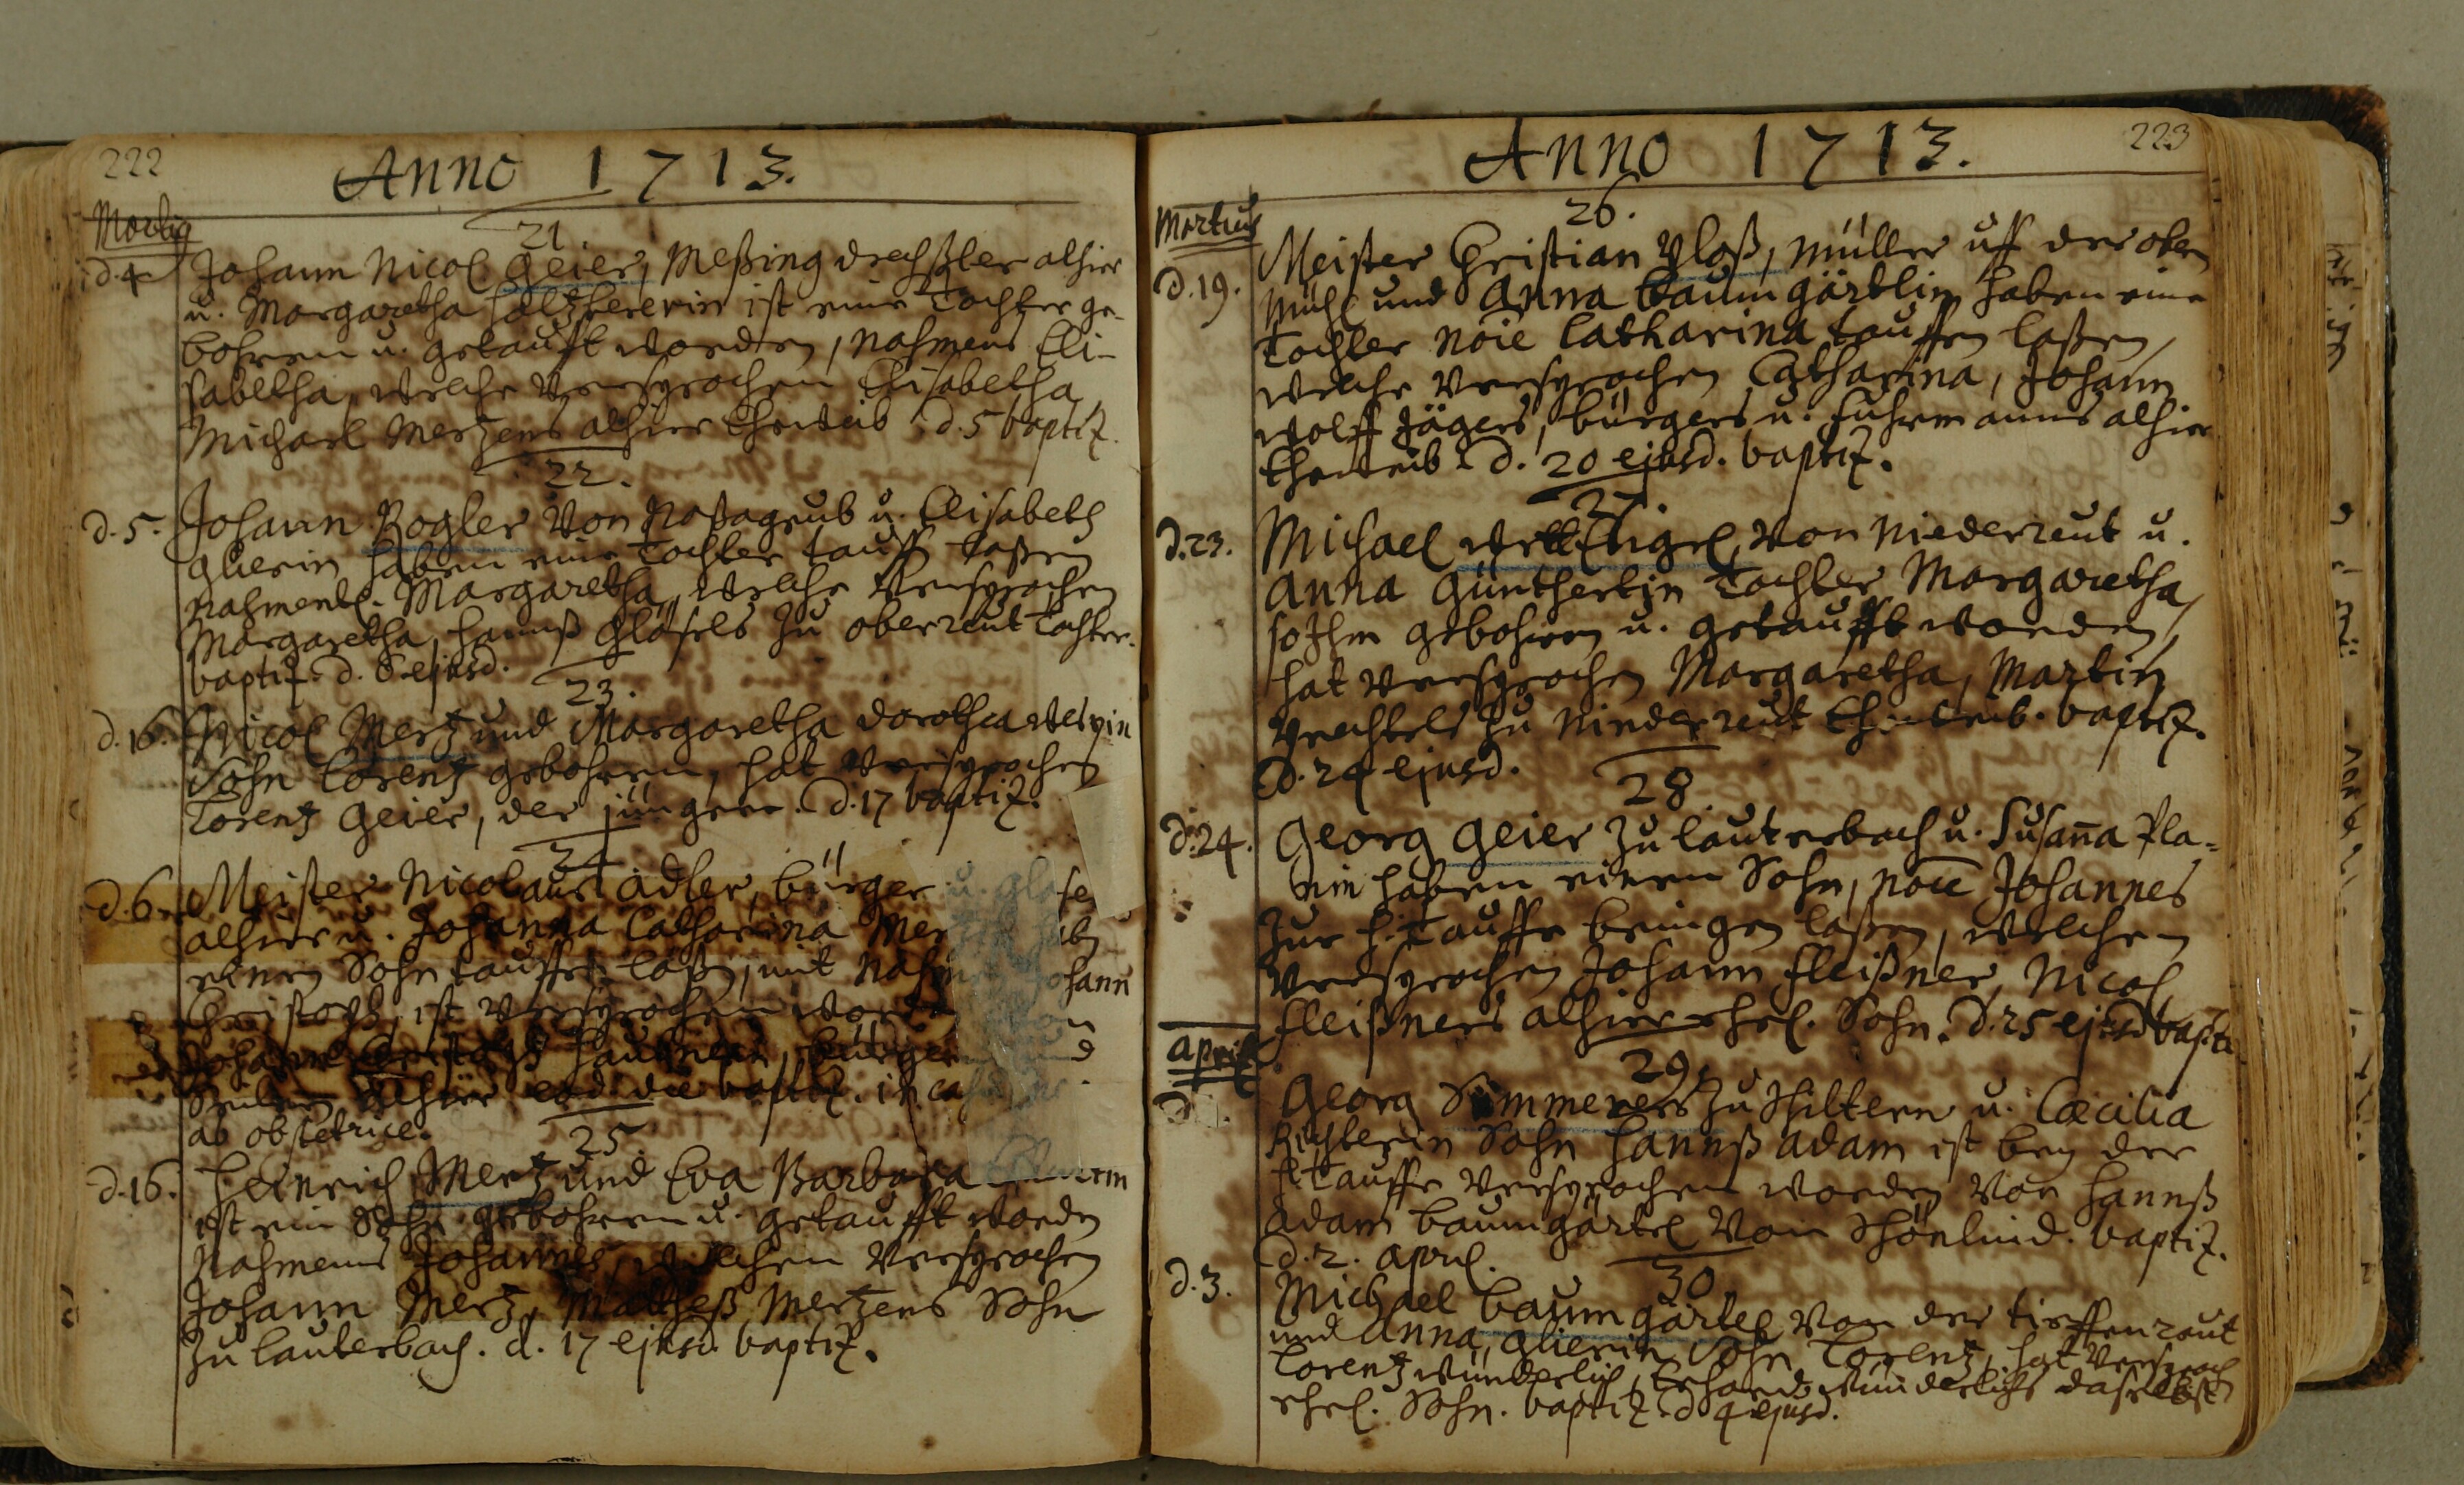 222
Anno 1713.
Martig
21.
d. 4 Johann Nicol Geier, Meßing drechßler alhier
u. Margaretha ist eine Tochter ge-
bohren u. getaufft worden, nahmens Eli-
sabetha, welche versprochen Elisabetha,
Michael Mertzens alhier Eheweib. d. 5 baptiz.
22.
d. 5. Johann Rogler von Roßagrub u. Elisabeth
Glierin haben eine Tochter tauff laßen
nahmentl. Margaretha, welche versprochen
Margaretha, Hannß Gläsels zu oberreut Tochter.
baptiz. d. 6 ejusd.
23.
d. 16. Nicol Mertz und Margaretha Dorothea
Sohn Lorentz gebohren, hat versprochen
Lorentz Geier, der jüngere. d. 17 baptiz.
24
d. 6. Meister Nicolaus Adler, bürger u. glase
alhier u. Johanna Catharina
einen Sohn tauffen laßen, mit Johann
Christoph, ist versprochen
Johann Christoph bürger
alhier eod. die baptiz. in
ab obstetrice.
25
d. 16. Heinrich Mertz und Eva Barbara
ist ein Sohn gebohren u. getaufft worden
Nahmens Johannes, welchen versprochen
Johann Mertz, Matheß Mertzens Sohn
zu Lauterbach. d. 17 ejusd. baptiz.
223
Anno 1713.
Martius
26.
d. 19. Meister Christian Ploß, Müller uff der obern
Mühl und Anna Baumgärtlin haben eine
Tochter noie Catharina tauffen laßen,
welche versprochen Catharina, Johann
Wolff Jägers, bürgers u. fuhrmanns alhier
Eheweib. d. 20 ejusd. baptiz.
27.
d. 23. Michael von Niederreut u.
Anna Güntherlin Tochter Margaretha,
so Ihm gebohren u. getaufft worden,
hat versprochen Margaretha, Martin
zu Niederreut Eheweib. baptiz.
d. 24 ejusd.
28
d. 24. Georg Geier zu Lauterbach u. Susanna Pla-
nin haben einen Sohn, noie Johannes
zur H. Tauffe bringen laßen, welchen
versprochen Johann Fleißner, Nicol
Fleißners alhier ehel. Sohn. d. 25 ejusd bapti
April
29.
Georg Sümmerer zu Schiltern u. Cæcilia
Richterin Sohn Hannß Adam ist bey der
H. Tauffe versprochen worden von Hannß
Adam Baumgärtel von Schönlind. baptiz.
d. 2. April.
30
d. 3. Michael Baumgärtel von der tieffenreut
und Anna, Glierin Sohn Lorentz, hat versproch
Lorentz Wunderlich, Erhard Wunderlichs daselbst
ehel. Sohn. baptiz. d 4 ejusd.